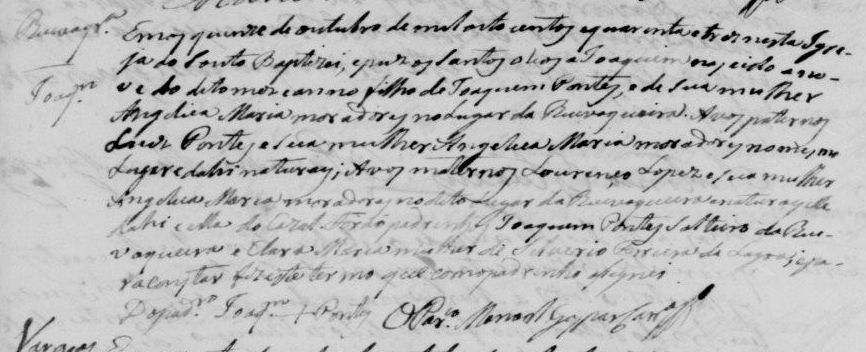 Ruvaqr.ª
Joaq.m
Em os quinze de outubro de mil oito centos e quarenta e tres nesta Igre-
ja do Souto Baptizei, e puz os Santos oleos a Joaquim nascido a no-
ve do dito mez e anno filho de Joaquim Pontes, e de sua mulher
Angelica Maria moradores no lugar da Ruvaqueira. Avos paternos
Luiz Pontes e sua mulher Angelica Maria moradores no mesmo
lugar e dahi naturaes; Avos maternos Lourenço Lopes e sua mulher
Angelica Maria moradores no dito lugar da Ruvaqueira e natural elle
dahi e ella do Casal. Forão padrinhos Joaquim Pontes solteiro da Ru-
vaqueira e Clara Maria mulher de Silverio Ferreira da Lagoa; e pa-
ra constar fiz este termo que com o padrinho asignei
Do padr.o Joaq.m + Pontes O Par.o Manoel Gaspar
Vargeos